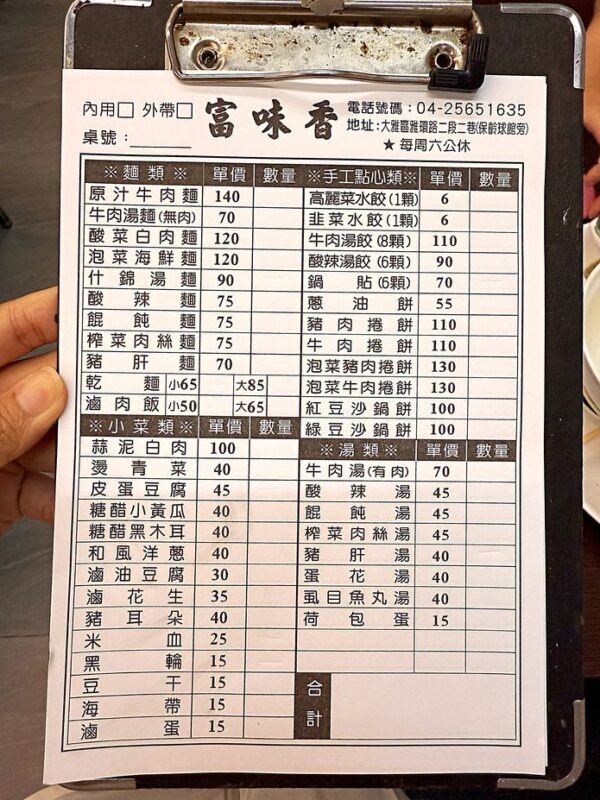 內用□ 外帶□
桌號：
富味香
電話號碼：04-25651635
地址：大雅區雅環路二段二巷(保齡球館旁)
★ 每周六公休
※麵類※ 單價 數量
原汁牛肉麵 140
牛肉湯麵(無肉) 70
酸菜白肉麵 120
泡菜海鮮麵 120
什錦湯麵 90
酸辣麵 75
餛飩麵 75
榨菜肉絲麵 75
豬肝麵 70
乾麵 小65 大85
滷肉飯 小50 大65
※小菜類※ 單價 數量
蒜泥白肉 100
燙青菜 40
皮蛋豆腐 45
糖醋小黃瓜 40
糖醋黑木耳 40
和風洋蔥 40
滷油豆腐 30
滷花生 35
豬耳朵 40
米血 25
黑輪 15
豆干 15
海帶 15
滷蛋 15
※手工點心類※ 單價 數量
高麗菜水餃(1顆) 6
韭菜水餃(1顆) 6
牛肉湯餃(8顆) 110
酸辣湯餃(6顆) 90
鍋貼(6顆) 70
蔥油餅 55
豬肉捲餅 110
牛肉捲餅 110
泡菜豬肉捲餅 130
泡菜牛肉捲餅 130
紅豆沙鍋餅 100
綠豆沙鍋餅 100
※湯類※ 單價 數量
牛肉湯(有肉) 70
酸辣湯 45
餛飩湯 45
榨菜肉絲湯 45
豬肝湯 40
蛋花湯 40
虱目魚丸湯 40
荷包蛋 15
合計